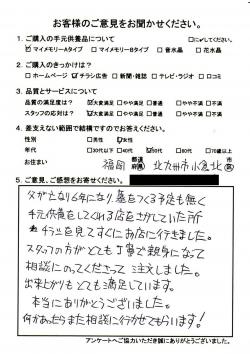 お客様のご意見をお聞かせください。
1. ご購入の手元供養品について □に✓してください。
☑ マイメモリーAタイプ □ マイメモリーBタイプ □ 音水晶 □ 花水晶
2. ご購入のきっかけは?
□ ホームページ ☑ チラシ広告 □ 新聞・雑誌 □ テレビ・ラジオ □ 口コミ
3. 品質とサービスについて
品質の満足度は? ☑大変満足 □やや満足 □普通 □やや不満 □不満
スタッフの対応は? ☑大変満足 □やや満足 □普通 □やや不満 □不満
4. 差支えない範囲で結構ですのでお答えください。
性別 □男性 ☑女性
年代 □30代以下 □40代 □50代 □60代 □70歳以上
お住まい 福岡 都道府県 北九州市小倉北 市区
5. ご意見、ご感想をお寄せください。
父が亡なり6年になり、墓をつくる予定も無く
手元供養をしてくれる店をさがしていた所
チラシを見てすぐにお店に行きました。
スタッフの方がとても丁寧で親身になって
相談にのってくださって注文しました。
出来上がりもとても満足しています。
本当にありがとうございました。
何かあったらまた相談に行かせてもらいます!
アンケートへご協力いただき誠にありがとうございました。